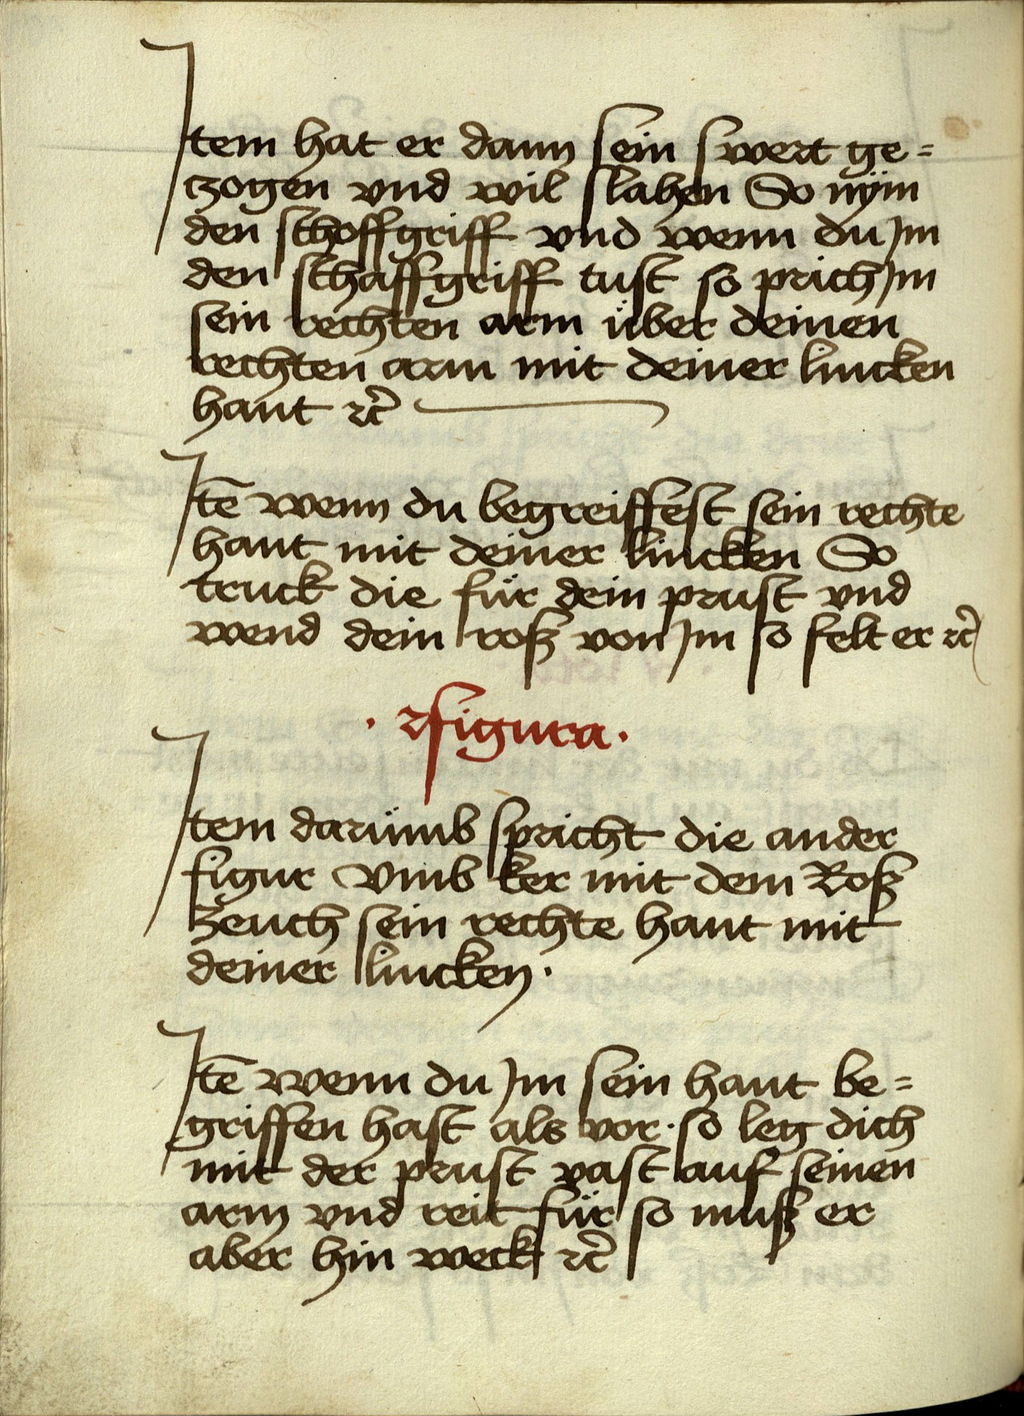 Item hat er dann sein swert ge=
zogen vnd wil slahen So nÿm
den schoffgriff vnd wenn du Jm
den schaffgriff tust so prich Jm
sein rechten arm über deinen
rechten arm mit deiner lincken
hant ⁊c̃
Itē wenn du begreiffest sein rechte
hant mit deiner lincken So
truck die für dein prust vnd
wend dein roß von Jm so felt er ⁊c̃
· 2 figura ·
Item darümb spricht die ander
figur Vmb ker mit dem Roß
zeuch sein rechte hant mit
deiner lincken ·
Itē wenn du Jm sein hant be=
griffen hast als vor · so leg dich
mit der prust vast auf seinen
arm vnd reit für so muß er
aber hin weck ⁊c̃